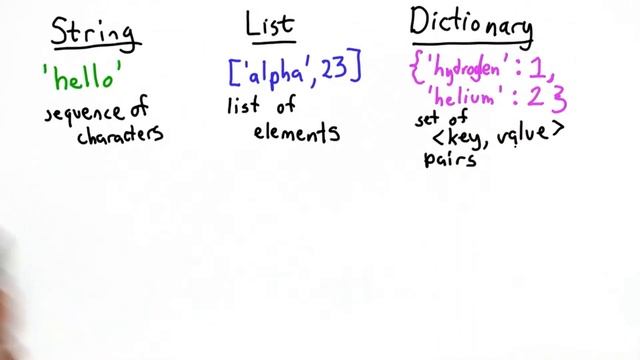 String
'hello'
sequence of
characters
List
['alpha', 23]
list of
elements
Dictionary
{'hydrogen' : 1,
'helium' : 2}
set of
<key, value>
pairs